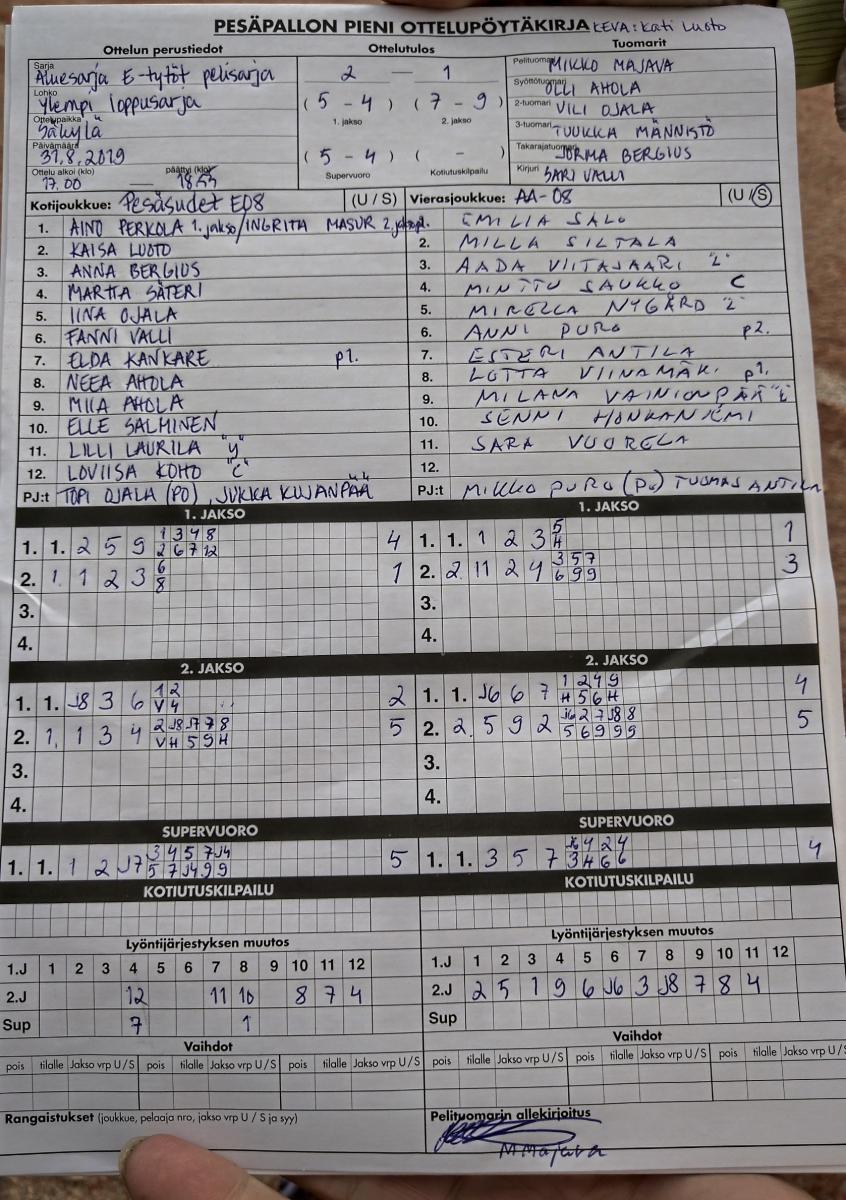 PESÄPALLON PIENI OTTELUPÖYTÄKIRJA KEVA: Kati Luoto
Ottelun perustiedot Ottelutulos Tuomarit
Sarja Aluesarja E-tytöt pelisarja 2 — 1 Pelituomari MIKKO MAJAVA
Lohko Ylempi loppusarja (5 - 4) (7 - 9) Syöttötuomari OLLI AHOLA
1. jakso 2. jakso 2-tuomari VILI OJALA
Ottelupaikka Säkylä 3-tuomari TUUKKA MÄNNISTÖ
Päivämäärä 31.8.2019 (5 - 4) ( - ) Takarajatuomari JORMA BERGIUS
Ottelu alkoi (klo) 17.00 — päättyi (klo) 18.53 Supervuoro Kotiutuskilpailu Kirjuri SARI VALLI
Kotijoukkue: Pesäsudet E08 (U / S) Vierasjoukkue: AA-08 (U / S)
1. AINO PERKOLA 1. jakso/INGRITA MASUR 2. jakso EMILIA SALO
2. KAISA LUOTO 2. MILLA SILTALA
3. ANNA BERGIUS 3. AADA VIITASAARI "L"
4. MARTTA SÄTERI 4. MINTTU SAUKKO C
5. IINA OJALA 5. MIRELLA NYGÅRD "2"
6. FANNI VALLI 6. ANNI PURO p2.
7. ELDA KANKARE p1. 7. ESTERI ANTILA
8. NEEA AHOLA 8. LOTTA VIINAMÄKI p1.
9. MIIA AHOLA 9. MILANA VAINIONPÄÄ
10. ELLE SALMINEN 10. SENNI HONKANIEMI
11. LILLI LAURILA "y" 11. SARA VUORELA
12. LOVIISA KOHO "C" 12.
PJ:t TOPI OJALA (PO), JUKKA KUJANPÄÄ PJ:t MIKKO PURO (Pu) TUOMAS ANTILA
1. JAKSO 1. JAKSO
1. 1. 2 5 9 1 3 4 8 4 1. 1. 1 2 3 5 1
2 6 7 12 H
2. 1. 1 2 3 6 1 2. 2. 11 2 4 3 5 7 3
8 6 9 9
3. 3.
4. 4.
2. JAKSO 2. JAKSO
1. 1. J8 3 6 1 2 2 1. 1. J6 6 7 1 2 4 9 4
V 4 H 5 6 H
2. 1. 1 3 4 2 J8 J7 7 8 5 2. 2. 5 9 2 J6 2 7 J8 8 5
V H 5 9 H 5 6 9 9 9
3. 3.
4. 4.
SUPERVUORO SUPERVUORO
1. 1. 1 2 J7 3 4 5 7 J4 5 1. 1. 3 5 7 J6 4 2 4 4
5 7 J4 9 9 3 H 6 6
KOTIUTUSKILPAILU KOTIUTUSKILPAILU
Lyöntijärjestyksen muutos Lyöntijärjestyksen muutos
1.J 1 2 3 4 5 6 7 8 9 10 11 12 1.J 1 2 3 4 5 6 7 8 9 10 11 12
2.J 12 11 10 8 7 4 2.J 2 5 1 9 6 J6 3 J8 7 8 4
Sup 7 1 Sup
Vaihdot Vaihdot
pois tilalle Jakso vrp U / S pois tilalle Jakso vrp U / S pois tilalle Jakso vrp U / S pois tilalle Jakso vrp U / S pois tilalle Jakso vrp U / S pois tilalle Jakso vrp U / S
Rangaistukset (joukkue, pelaaja nro, jakso vrp U / S ja syy) Pelituomarin allekirjoitus
M Majava